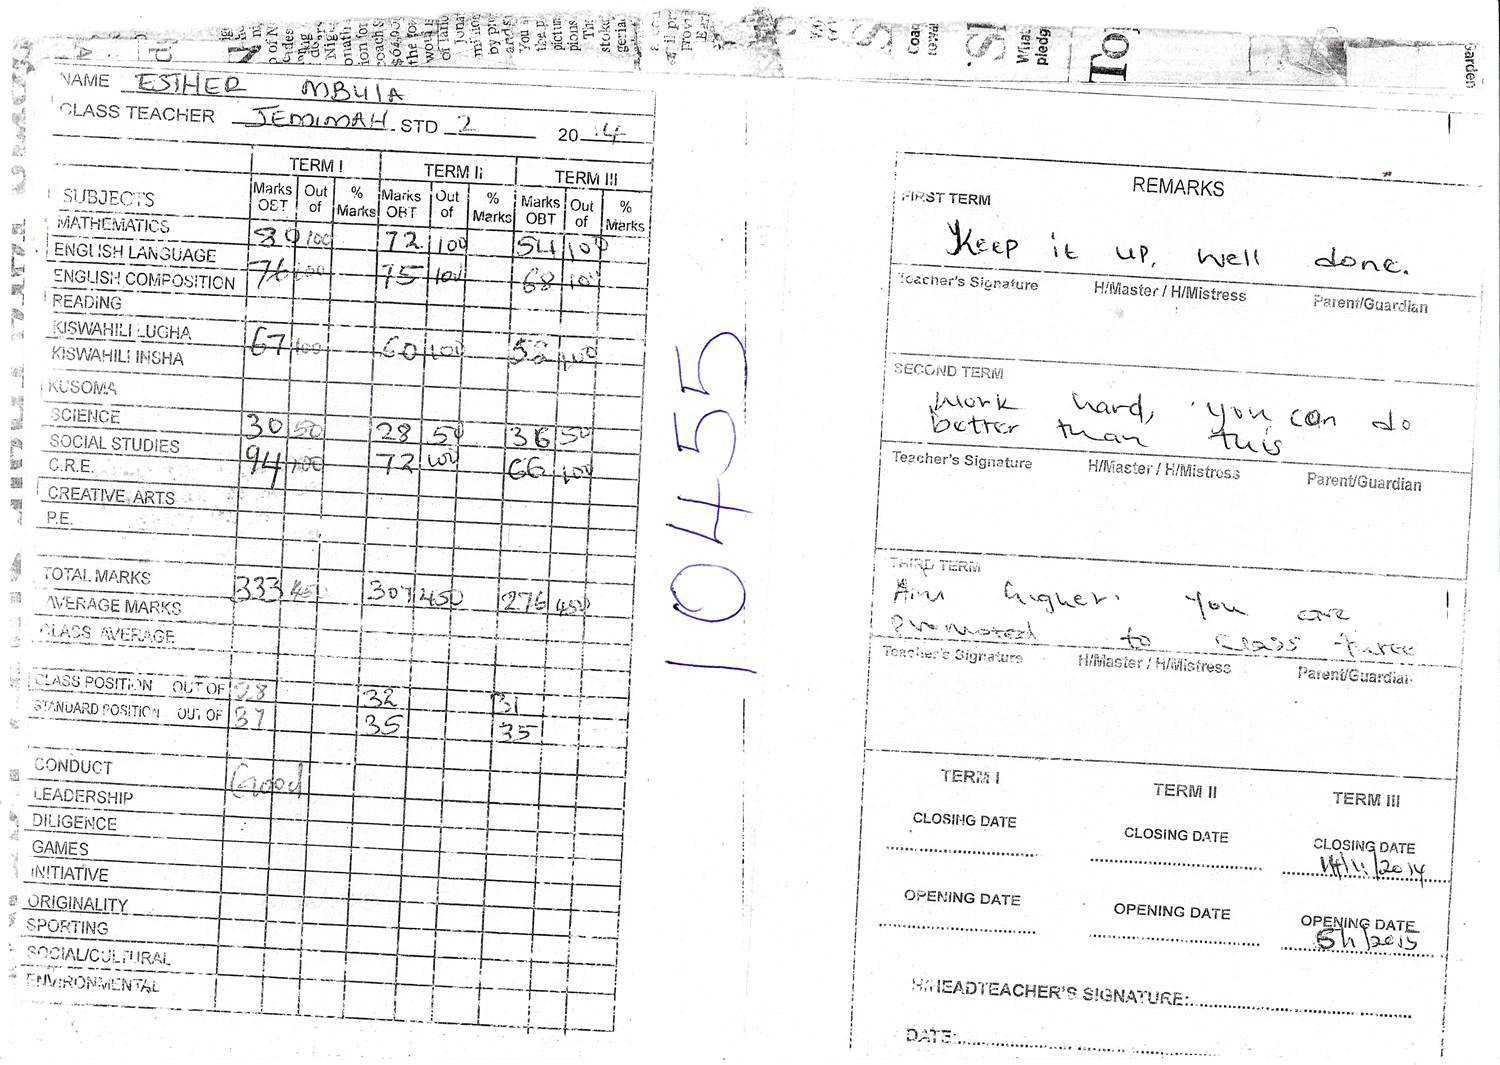 NAME ESTHER MBULA
CLASS TEACHER JEMIMAH STD 2 2014
TERM I TERM II TERM III
SUBJECTS Marks OBT Out of % Marks Marks OBT Out of % Marks Marks OBT Out of % Marks
MATHEMATICS 80 100 72 100 54 100
ENGLISH LANGUAGE
ENGLISH COMPOSITION 76 100 75 100 68 100
READING
KISWAHILI LUGHA
KISWAHILI INSHA 67 100 60 100 52 100
KUSOMA
SCIENCE 30 50 28 50 36 50
SOCIAL STUDIES
C.R.E. 94 100 72 100 66 100
CREATIVE ARTS
P.E.
TOTAL MARKS 333 450 307 450 276 450
AVERAGE MARKS
CLASS AVERAGE
CLASS POSITION OUT OF 28 32 31
STANDARD POSITION OUT OF 37 35 35
CONDUCT Good
LEADERSHIP
DILIGENCE
GAMES
INITIATIVE
ORIGINALITY
SPORTING
SOCIAL/CULTURAL
ENVIRONMENTAL
10455
REMARKS
FIRST TERM
Keep it up, well done.
Teacher's Signature H/Master / H/Mistress Parent/Guardian
SECOND TERM
Work hard, you can do
better than this
Teacher's Signature H/Master / H/Mistross Parent/Guardian
THIRD TERM
Aim higher. You are
promoted to class three
Teacher's Signature H/Master / H/Mistress Parent/Guardian
TERM I TERM II TERM III
CLOSING DATE CLOSING DATE CLOSING DATE
14/11/2014
OPENING DATE OPENING DATE OPENING DATE
5/1/2015
H/HEADTEACHER'S SIGNATURE:
DATE: